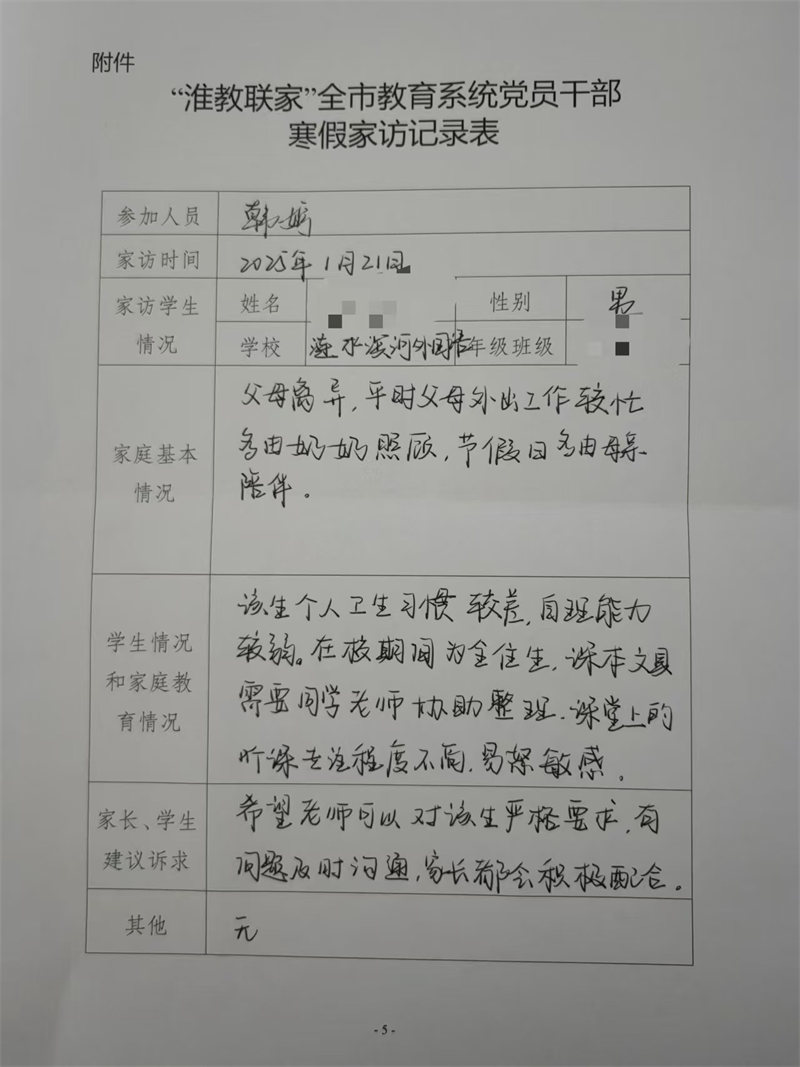 附件
“淮教联家”全市教育系统党员干部
寒假家访记录表
参加人员 韩婷
家访时间 2025年1月21日
家访学生情况 姓名 性别 男
学校 涟水滨河外国语 年级班级
家庭基本情况
父母离异，平时父母外出工作较忙
多由奶奶照顾，节假日多由母亲
陪伴。
学生情况和家庭教育情况
该生个人卫生习惯较差，自理能力
较弱。在校期间为全住生，课本文具
需要同学老师协助整理，课堂上的
听课专注程度不同，易怒敏感。
家长、学生建议诉求
希望老师可以对该生严格要求，有
问题及时沟通，家长都会积极配合。
其他 无
- 5 -